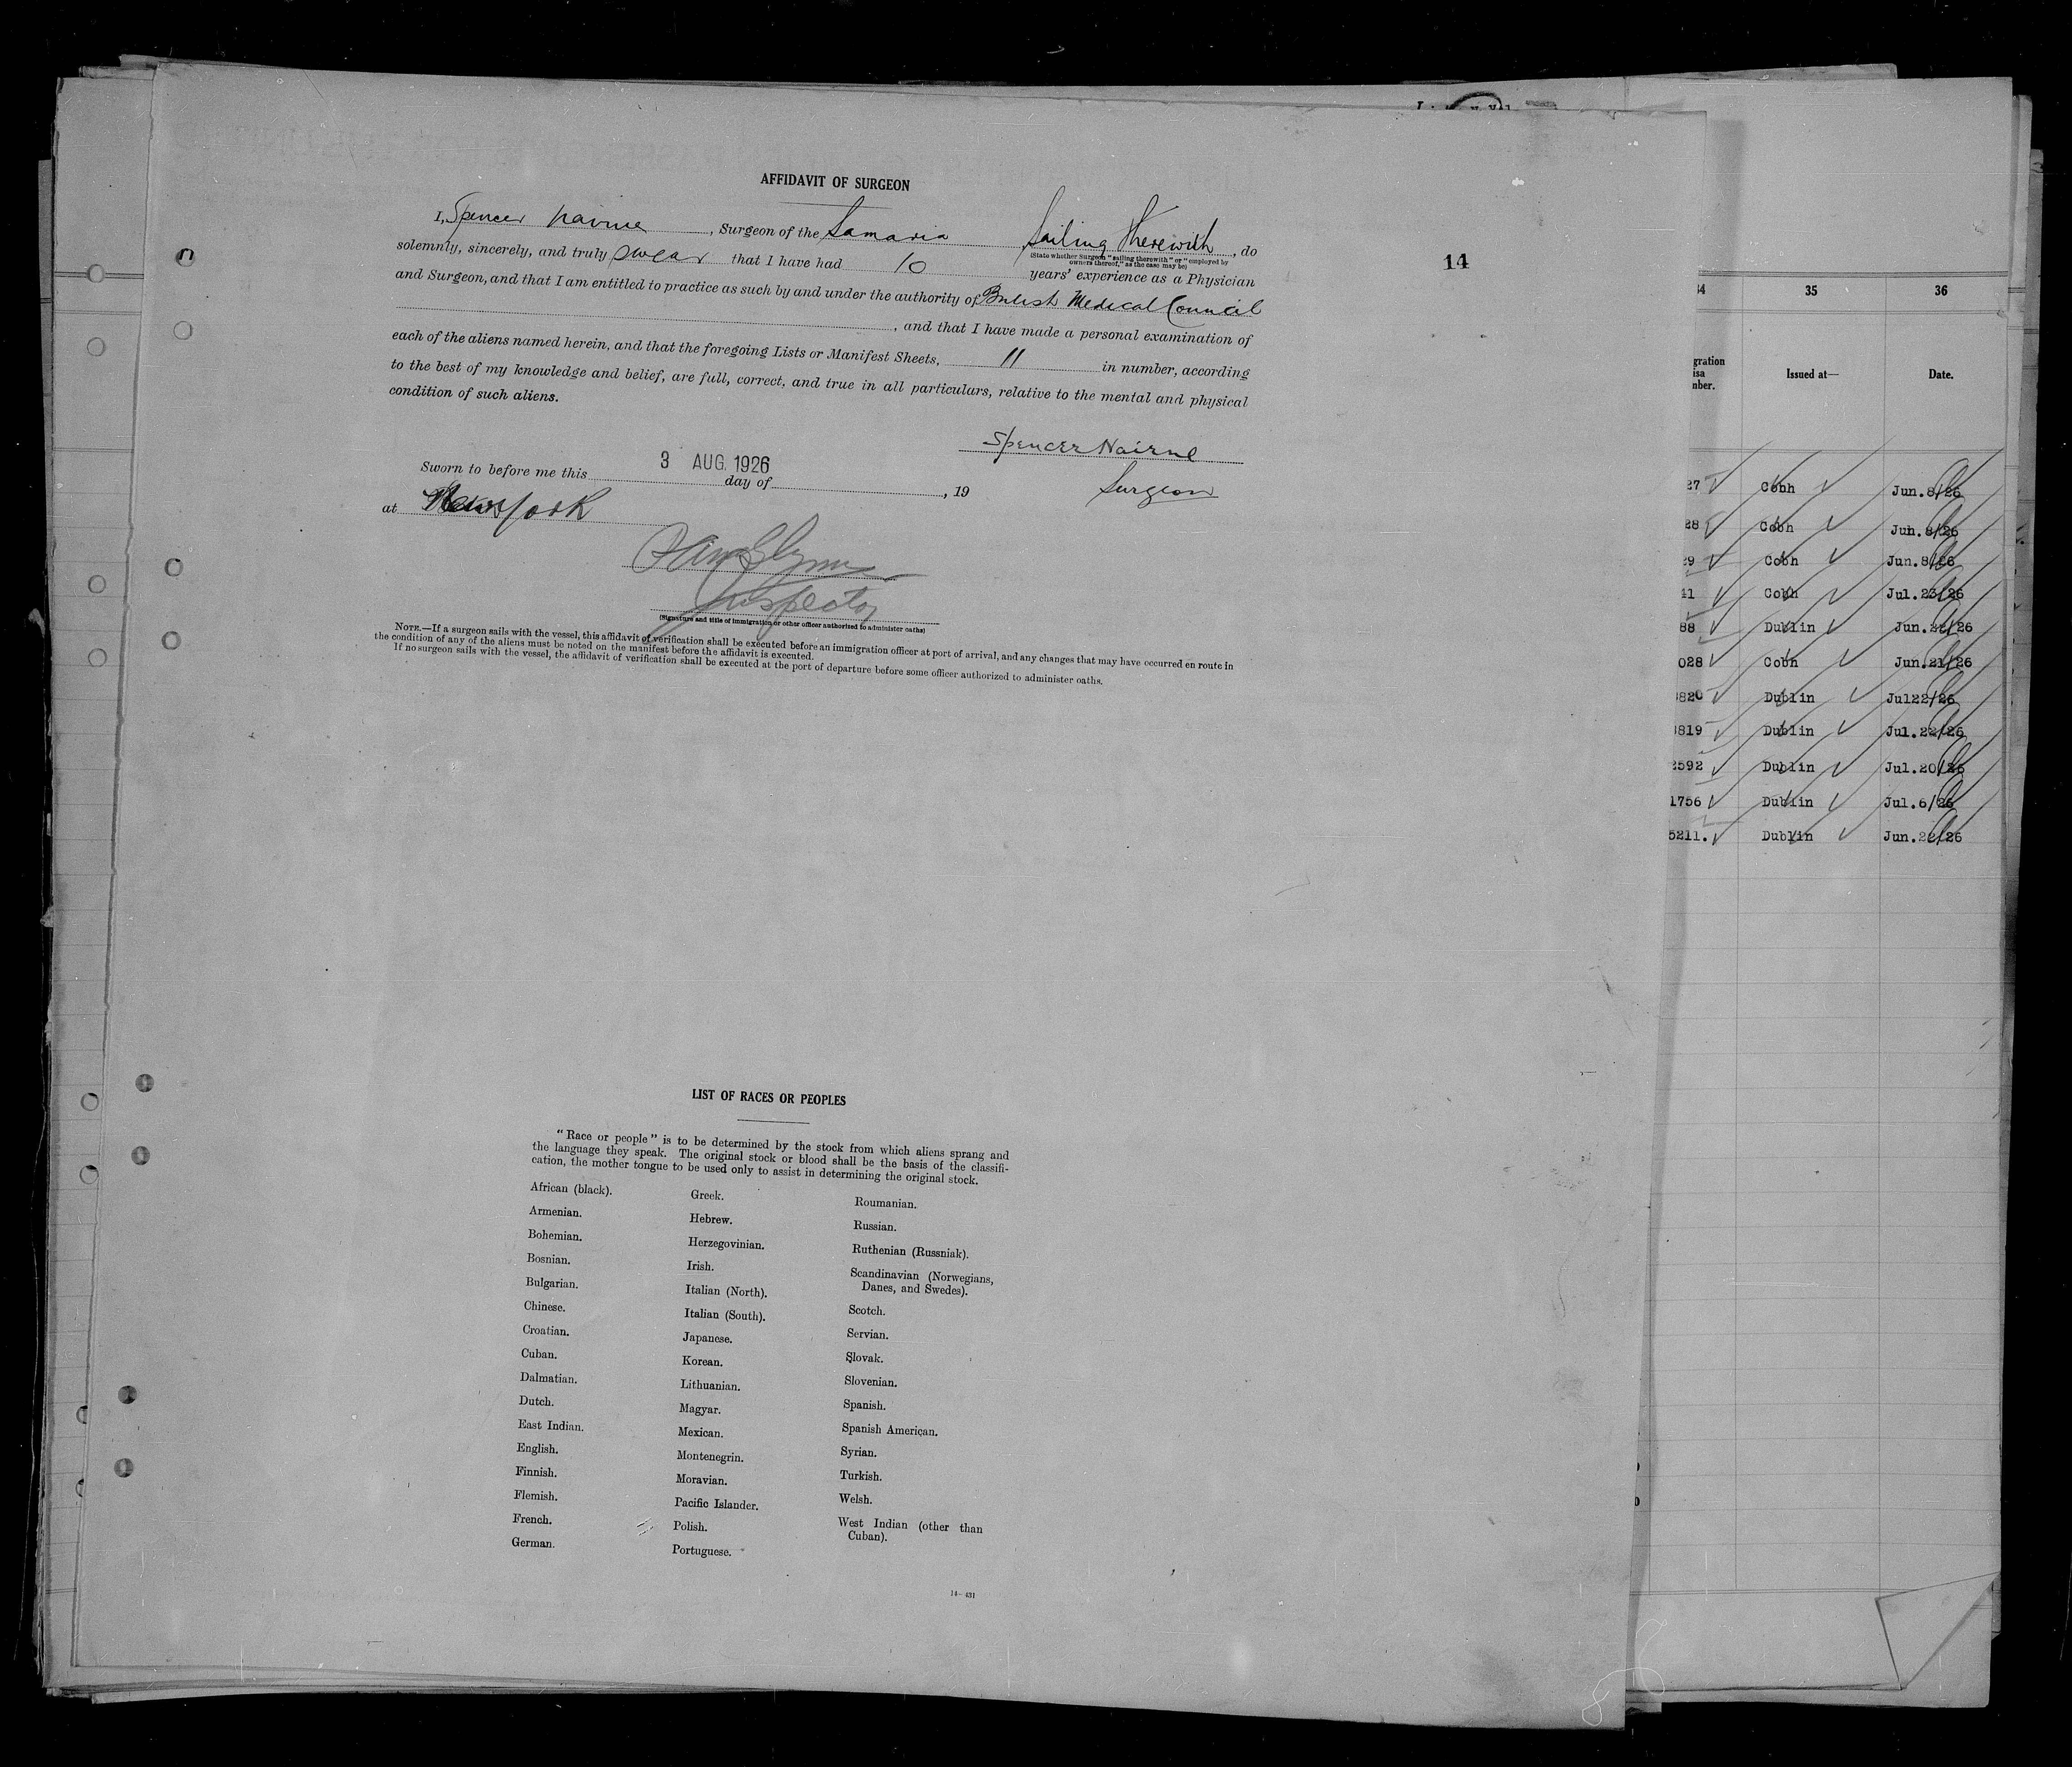 AFFIDAVIT OF SURGEON
I, Spencer Nairne, Surgeon of the Samaria Sailing Therewith, do
(State whether Surgeon "sailing therewith" or "employed by
owners thereof," as the case may be)
solemnly, sincerely, and truly swear that I have had 10 years' experience as a Physician
and Surgeon, and that I am entitled to practice as such by and under the authority of British Medical Council
, and that I have made a personal examination of
each of the aliens named herein, and that the foregoing Lists or Manifest Sheets, 11 in number, according
to the best of my knowledge and belief, are full, correct, and true in all particulars, relative to the mental and physical
condition of such aliens.
Spencer Nairne
Surgeon
Sworn to before me this 3 AUG. 1926 day of , 19
at New York
Inspector
(Signature and title of immigration or other officer authorized to administer oaths)
NOTE.—If a surgeon sails with the vessel, this affidavit of verification shall be executed before an immigration officer at port of arrival, and any changes that may have occurred en route in
the condition of any of the aliens must be noted on the manifest before the affidavit is executed.
If no surgeon sails with the vessel, the affidavit of verification shall be executed at the port of departure before some officer authorized to administer oaths.
14
LIST OF RACES OR PEOPLES
"Race or people" is to be determined by the stock from which aliens sprang and
the language they speak. The original stock or blood shall be the basis of the classifi-
cation, the mother tongue to be used only to assist in determining the original stock.
African (black).
Armenian.
Bohemian.
Bosnian.
Bulgarian.
Chinese.
Croatian.
Cuban.
Dalmatian.
Dutch.
East Indian.
English.
Finnish.
Flemish.
French.
German.
Greek.
Hebrew.
Herzegovinian.
Irish.
Italian (North).
Italian (South).
Japanese.
Korean.
Lithuanian.
Magyar.
Mexican.
Montenegrin.
Moravian.
Pacific Islander.
Polish.
Portuguese.
Roumanian.
Russian.
Ruthenian (Russniak).
Scandinavian (Norwegians,
Danes, and Swedes).
Scotch.
Servian.
Slovak.
Slovenian.
Spanish.
Spanish American.
Syrian.
Turkish.
Welsh.
West Indian (other than
Cuban).
14—431
34 35 36
gration
isa
mber.
Issued at—
Date.
27 Cobh Jun.8/26
28 Cobh Jun.8/26
29 Cobh Jun.8/26
41 Cobh Jul.23/26
88 Dublin Jun. /26
028 Cobh Jun.21/26
820 Dublin Jul22/26
3819 Dublin Jul.22/26
2592 Dublin Jul.20/26
1756 Dublin Jul.6/26
5211. Dublin Jun.22/26